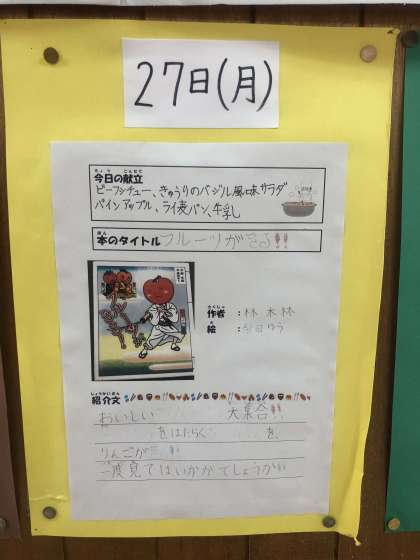 27日(月)
今日の献立
ビーフシチュー、きゅうりのバジル風味サラダ
パインアップル、ライ麦パン、牛乳
本のタイトル フルーツがきる!!
作者:林 木林
絵:
紹介文
おいしい 大集合!!
をはたらく を、
りんごが
一度見てはいかがでしょうか